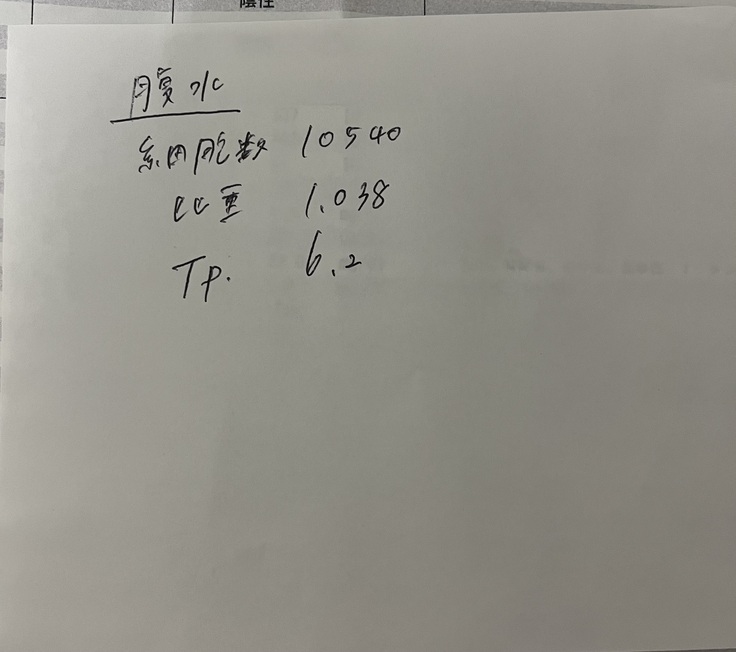 陰性
腹水
細胞数 10540
比重 1.038
TP. 6.2